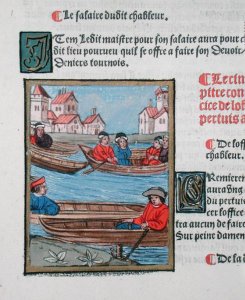 ¶ Le salaire dudit chableur.
ITem Ledit maister pour son salaire aura pour c
dit lieu pourueu quil se offre a faire son Deuoir
Deniers tournois.
¶ Le cin
pitre con
cice de lof
pertuis a
¶ De loff
chableur.
PRemierer
du pertui
cers dudit
tra aucun de faire
Sur peine damen
¶ De